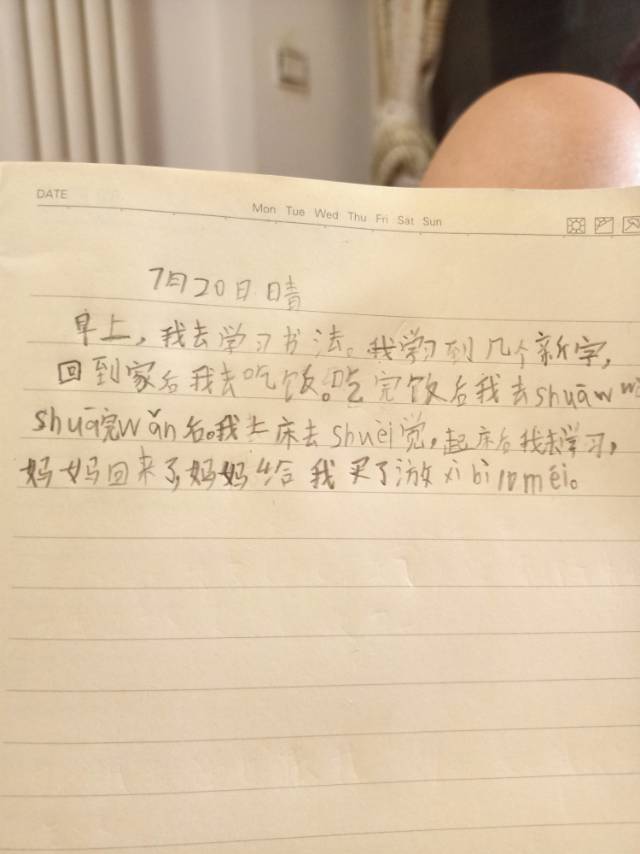 DATE
Mon Tue Wed Thu Fri Sat Sun
7月20日 晴
早上，我去学习书法。我学习到几个新字，
回到家后我去吃饭。吃完饭后我去shuā
shuā完wǎn后。我上床去shuèi觉，起床后我去学习，
妈妈回来了，妈妈给我买了游xì bì